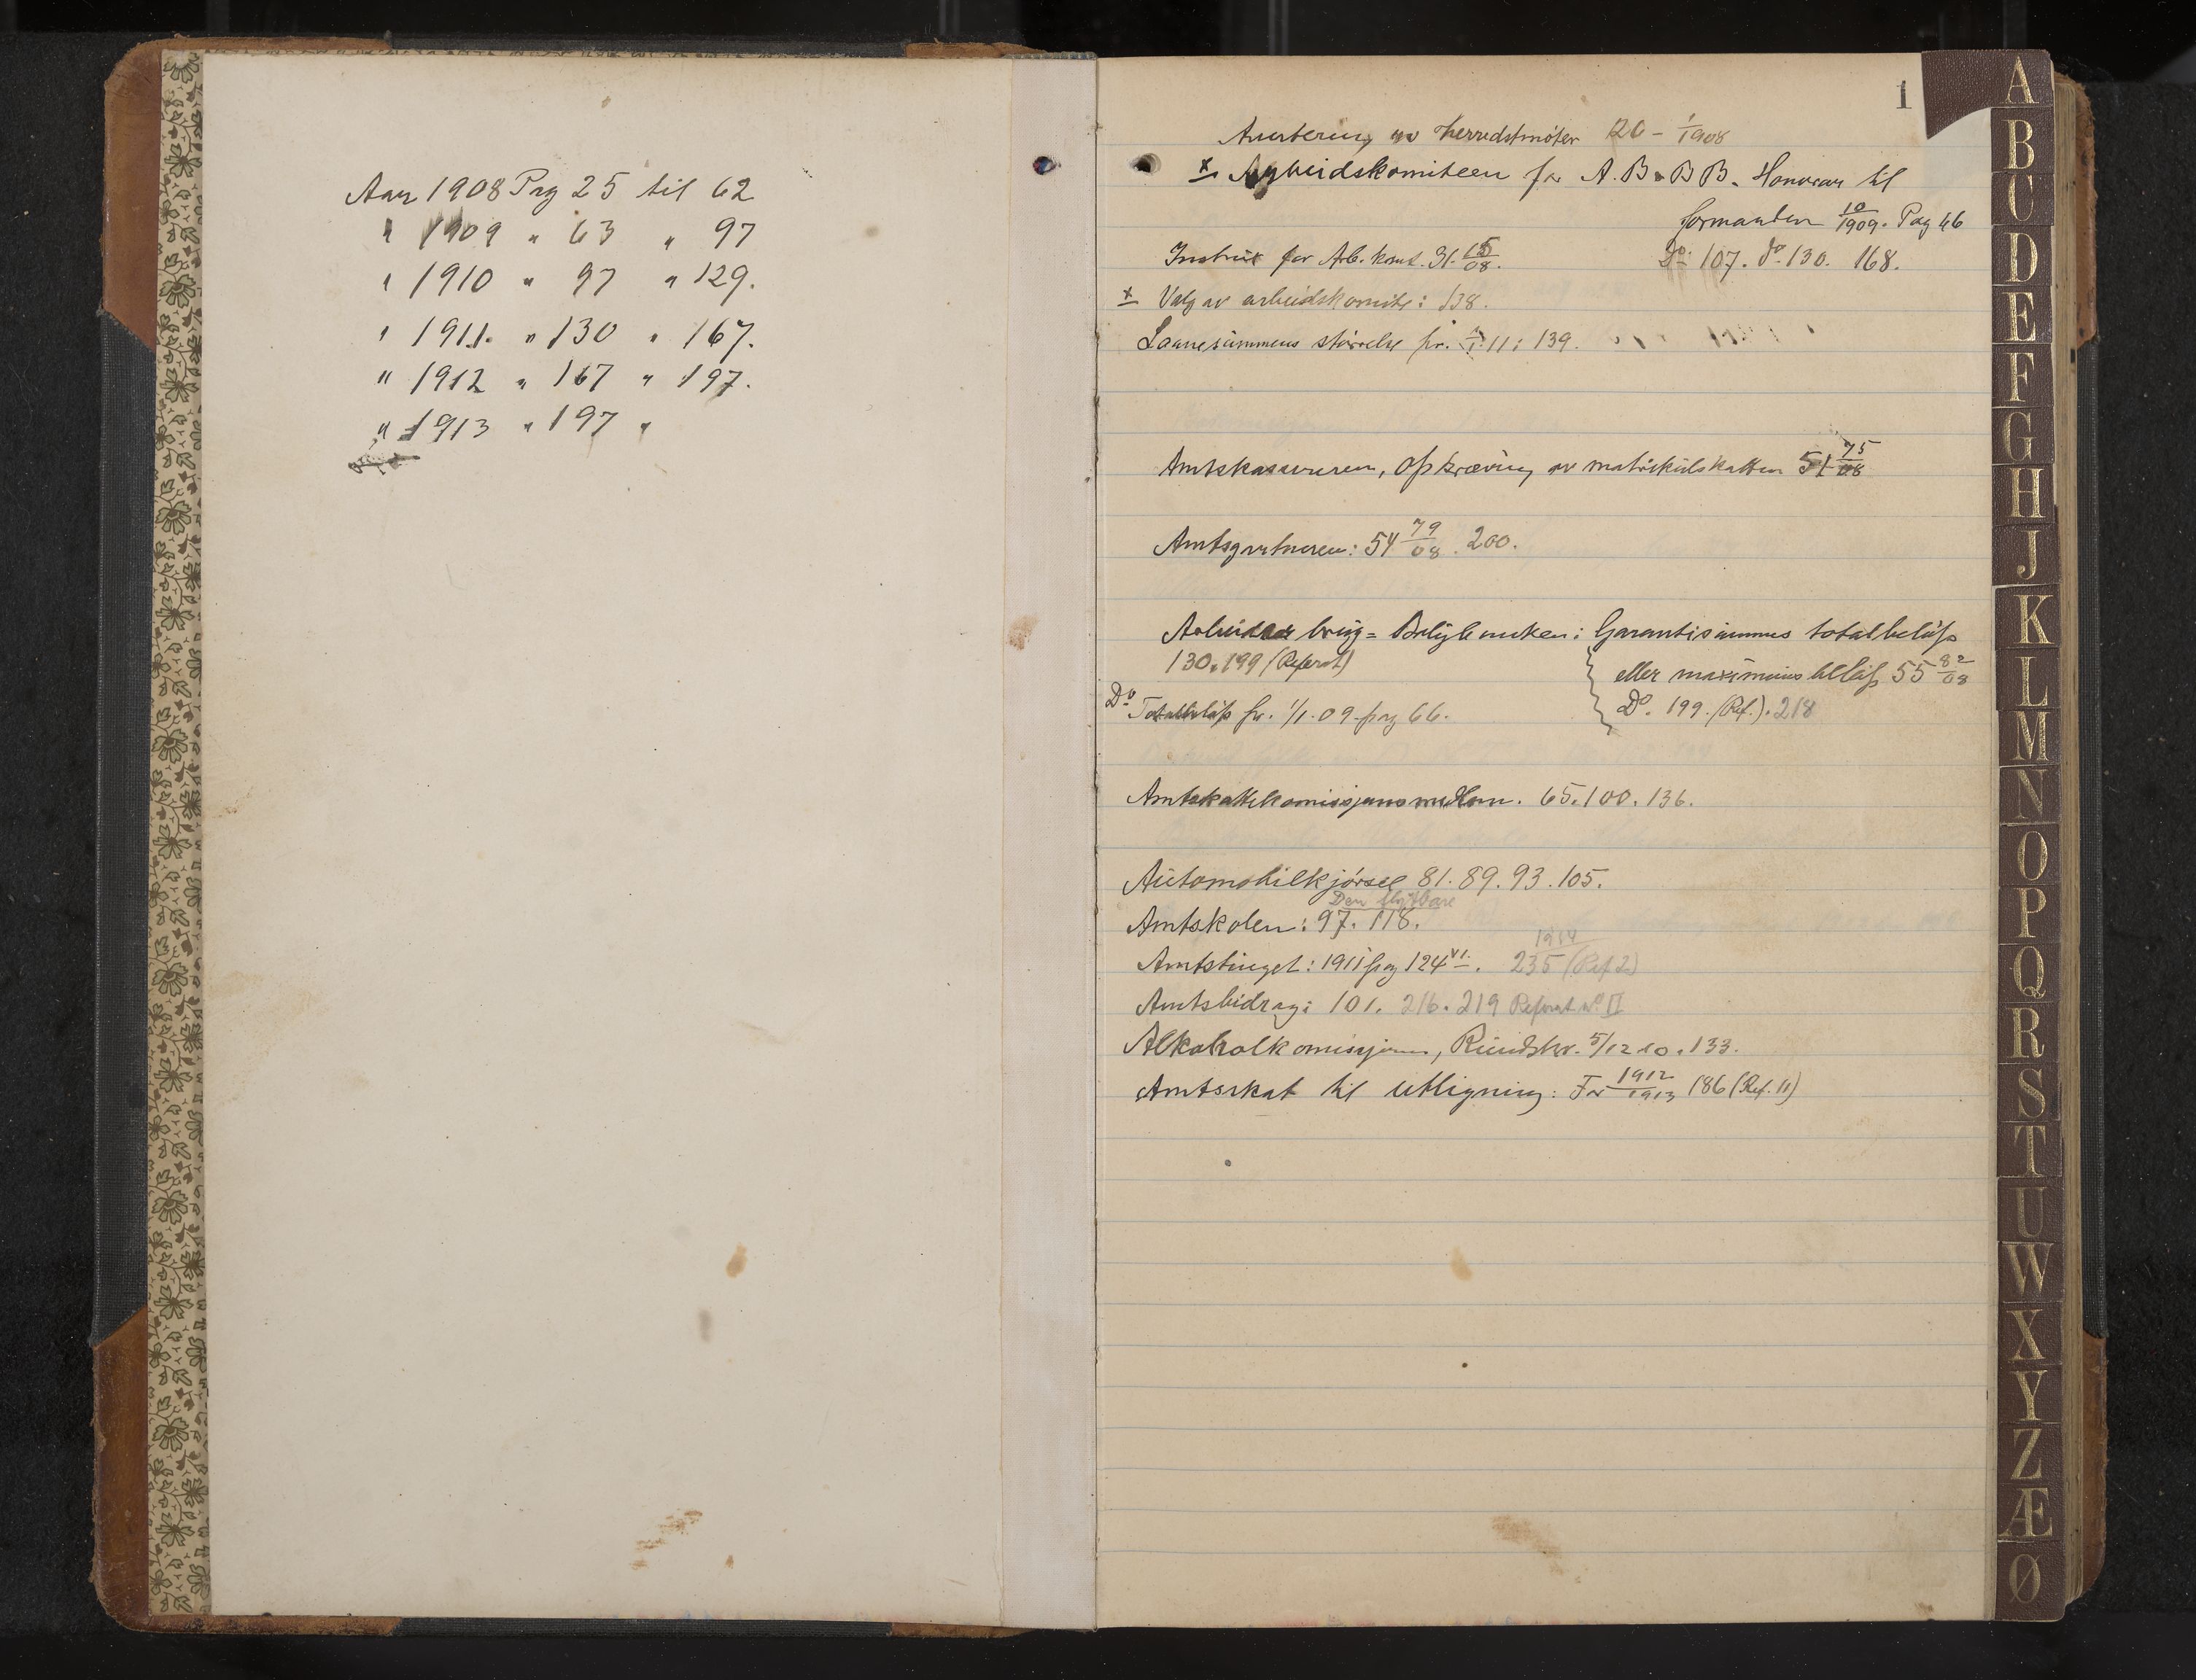 Aar 1908 Pag 25 til 62
" 1909 " 63 " 97
" 1910 " 97 " 129.
" 1911. " 130 " 167.
" 1912 " 167 " 197.
" 1913 " 197 "
1
av Herredsmøter 26 - 1/1908
x Arbeidskomiteen for A. B & B B. Honorar til
formanden 10/1909. Pag 66
Instrux for Arb. komt. 31. 15/08.
Do: 107. do. 130. 168.
x Valg av arbeidskomite: 138.
Laanesummens størrelse pr. 1/1. 11: 139.
Amtskassereren, Opkræving av matrikulskatten 51 75/08
Amtsgartneren: 54 79/08. 200.
Arbeider brug = Garantisummens totalbeløp
130. 199 (Referat)
eller maximumsbeløp 55 82/08
Do. 199. (Ref.). 218
Do Totalbeløp pr. 1/1. 09. pag 66.
Amtskattekomisjonsmedlem. 65. 100. 136.
Automobilkjørsel 81. 89. 93. 105.
Den flytbare
Amtskolen: 97. 118.
1914
Amtstinget: 1911 pag 124 VI. 235 (Ref 2)
Amtsbidrag: 101. 216. 219 Referat No. II
Alkoholkomisjonen, Rundskr. 5/12 10. 133.
Amtsskat til utligning: For 1912/1913 186 (Ref. 11)
A
B
C
D
E
F
G
H
J
K
L
M
N
O
P
Q
R
S
T
U
W
X
Y
Z
Æ
Ø